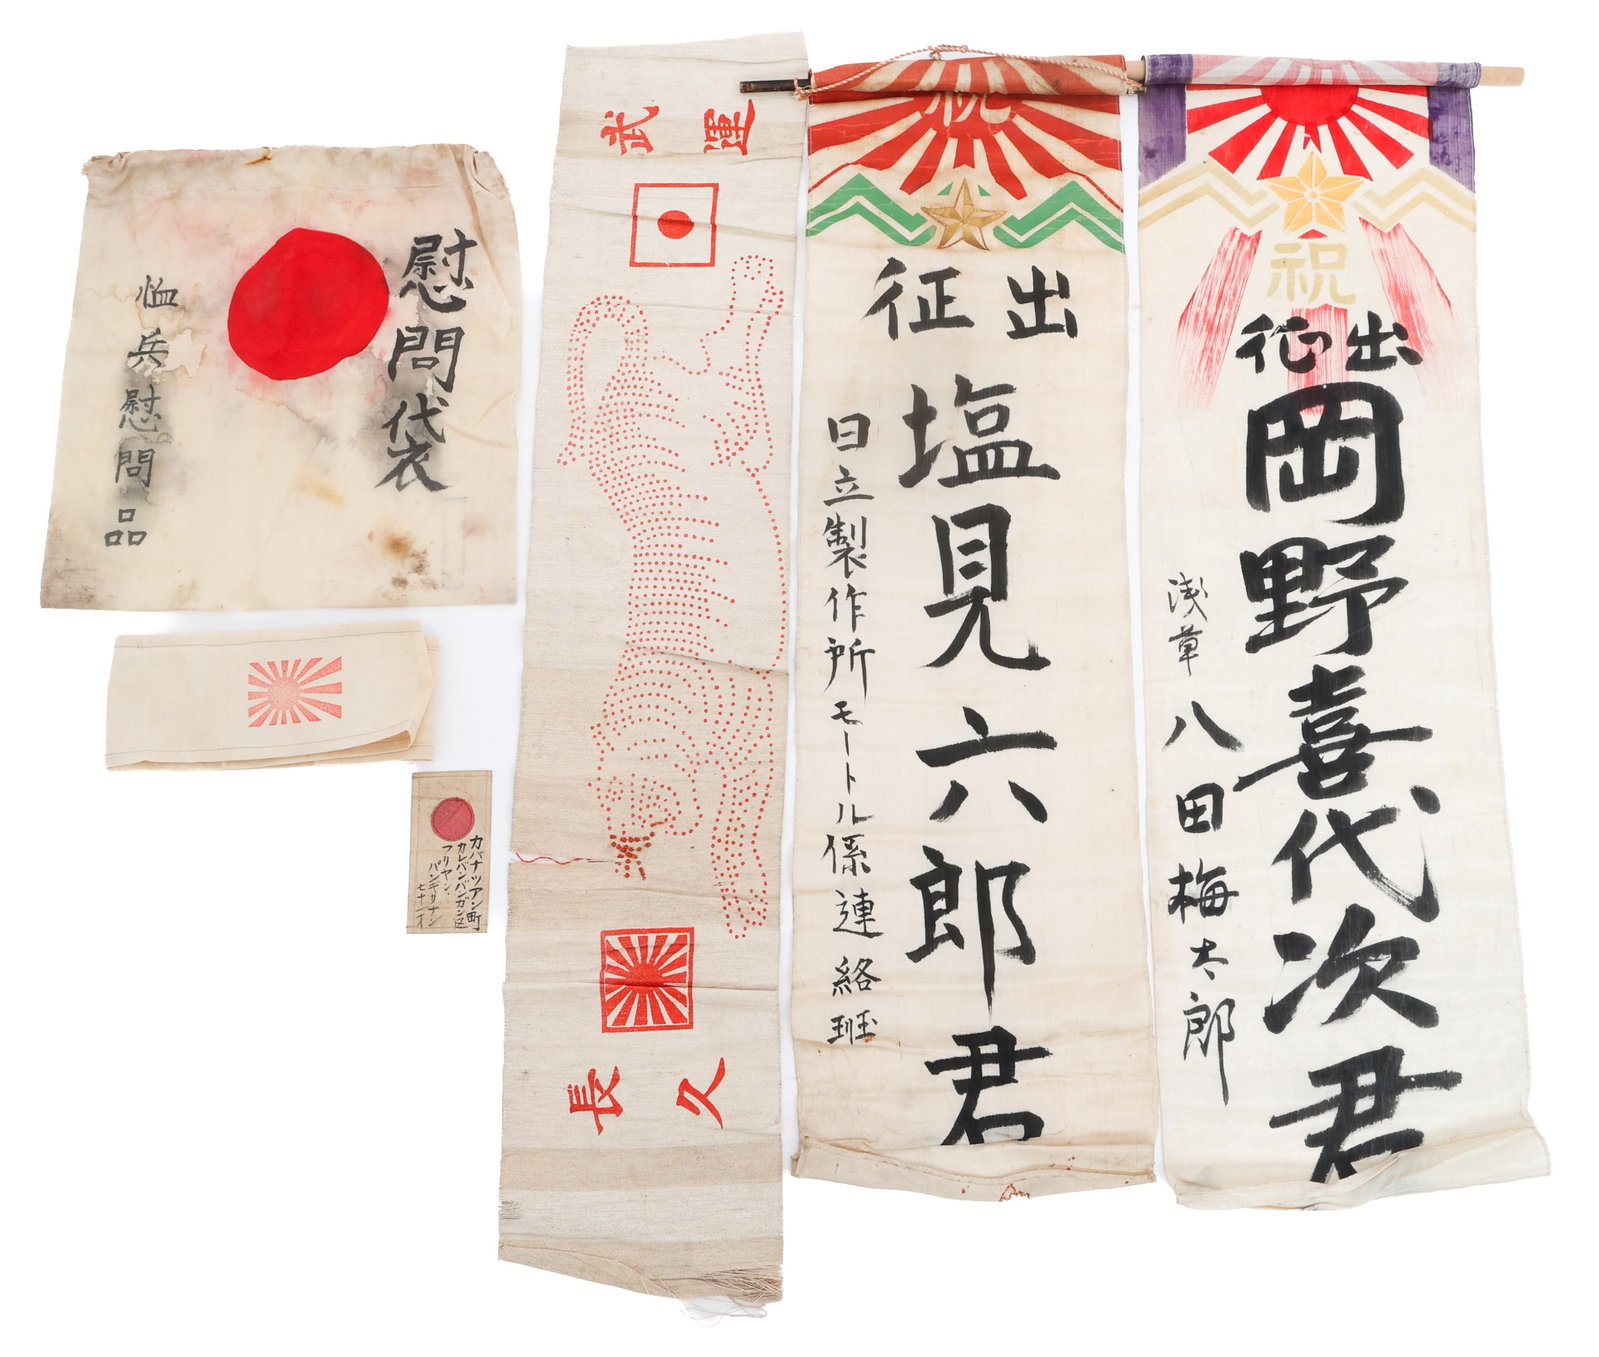 慰問代衣
恤兵慰問品
カバナツアン町
カレバンバンガン区
フリヤン、
パンギリナン
七十一才
武運
長久
祝
出征
塩見六郎君
日立製作所モートル係連絡班
祝
出征
岡野喜代次君
浅草
八田梅太郎